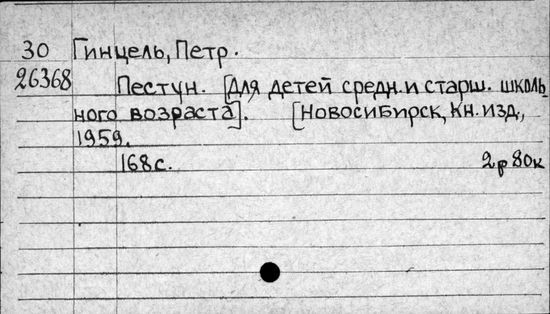 30 Гинцель, Петр.
26368 Пестун. [Для детей средн. и старш. школь
ного возраста]. [Новосибирск, Кн. изд.,
1959.
168 с. 2р 80к